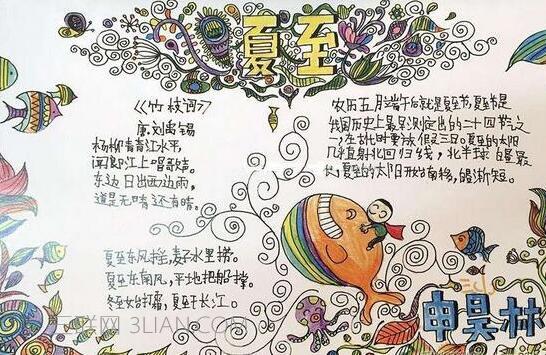 夏至
《竹枝词》
唐 刘禹锡
杨柳青青江水平,
闻郎江上唱歌声。
东边日出西边雨,
道是无晴还有晴。
夏至东风摇,麦子水里捞。
夏至东南风,平地把船撑。
冬至始打霜,夏至干长江。
农历五月端午后就是夏至节,夏至是
我国历史上最早测定出的二十四节气之
一,在古代时要放假三日。夏至的太阳
几直射北回归线,北半球白昼最
长,夏至的太阳开始南移,白昼渐短。
申昊林
三联网 3LIAN.COM